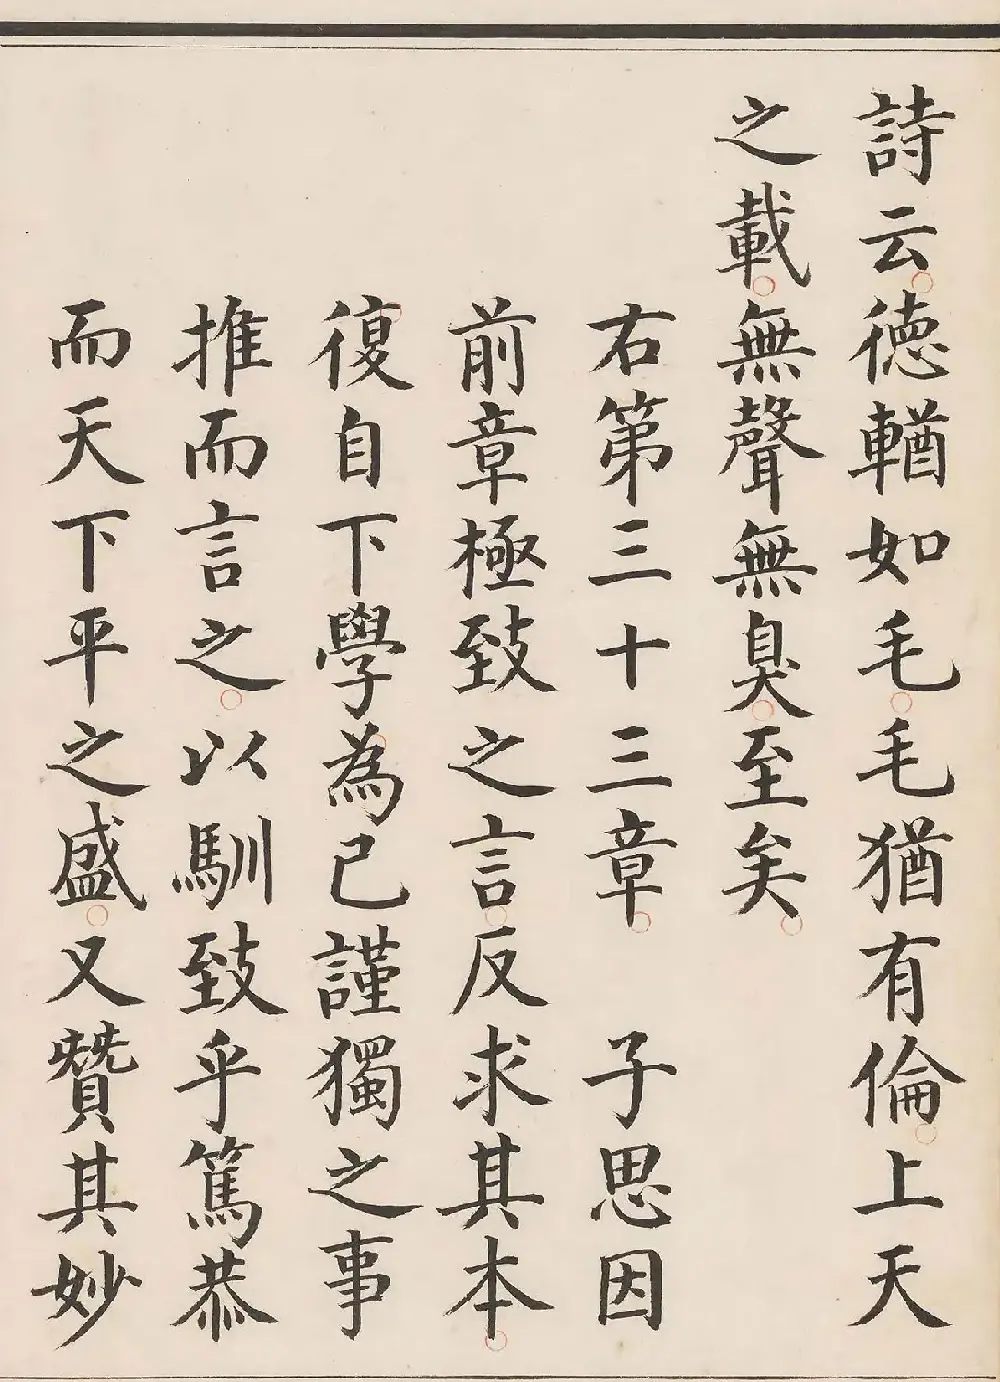 詩云德輶如毛毛猶有倫上天
之載無聲無臭至矣
右第三十三章 子思因
前章極致之言反求其本
復自下學為己謹獨之事
推而言之以馴致乎篤恭
而天下平之盛又贊其妙